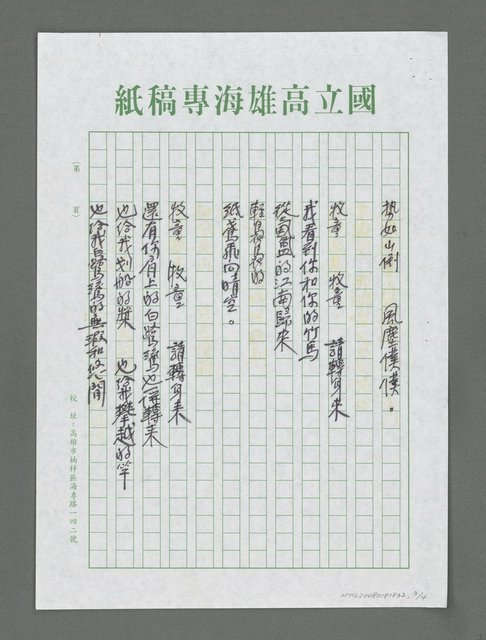 國立高雄海專稿紙
勢如山倒 風塵僕僕。
牧童 牧童 請轉身來
我看到你和你的竹馬
從氤氳的江南歸來
輕裊裊的
紙鳶飛向晴空。
牧童 牧童 請轉身來
還有你肩上的白鷺鷥也一併轉來
也給我划船的槳 也給我攀越的竿
也給我白鷺鷥的無邪和悠閒
(第 頁)
校 址:高雄市楠梓區海專路一四二號
NMTL20080181822, 3/4